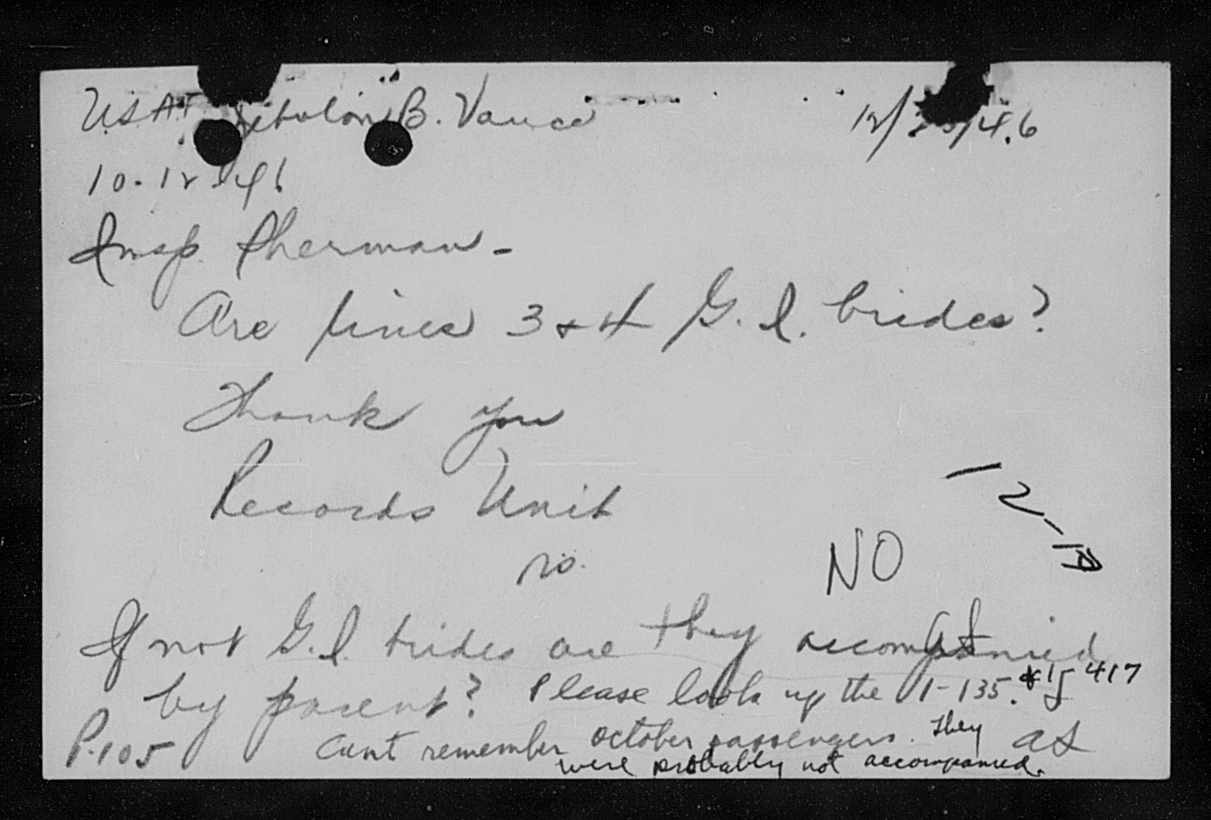 USAT Zebulon B. Vance
10-12-46
Insp. Sherman -
Are lines 3 & 4 G.I. brides?
Thank you
Records Unit
NO
If not G.I. brides are they accompanied
by parent? Please look up the I-135.
P.105 Can't remember October passengers. They
were probably not accompanied.